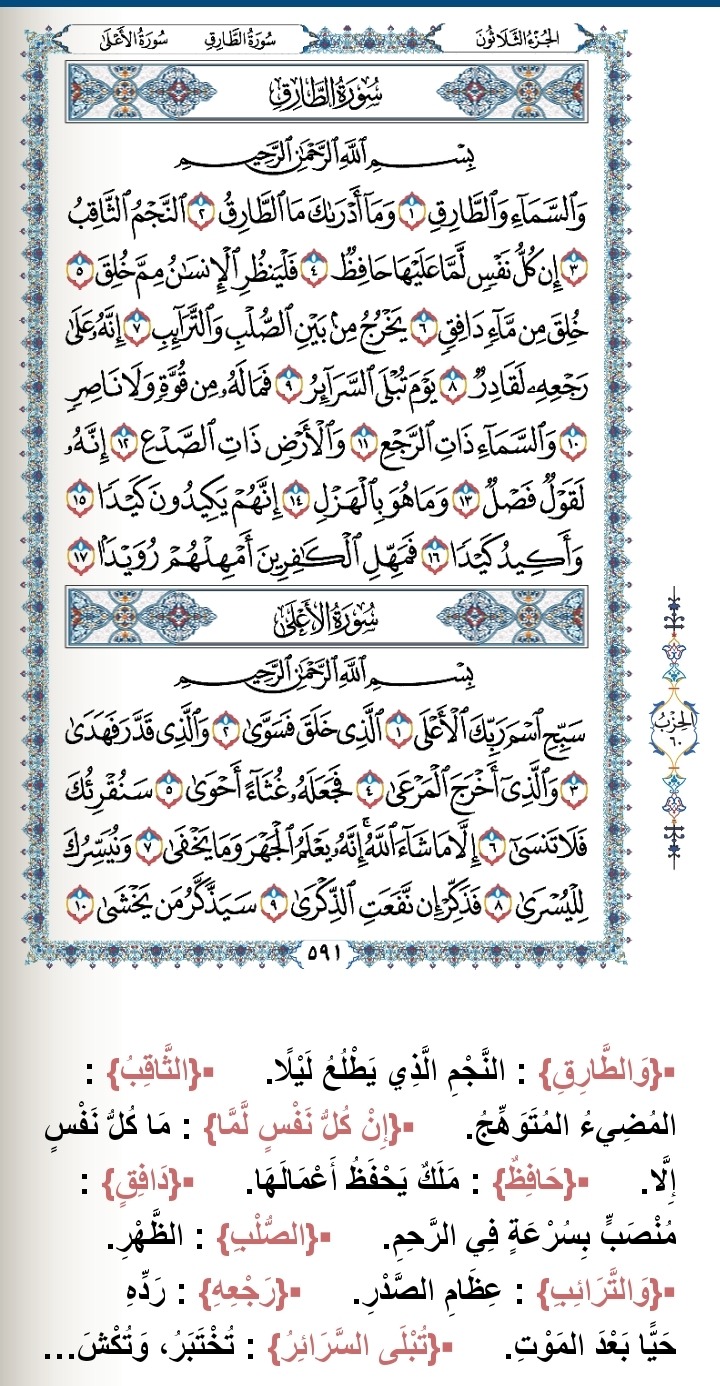 الجُزْءُ الثَّلَاثُونَ سُورَةُ الطَّارِقِ سُورَةُ الأَعْلَىٰ
سُورَةُ الطَّارِقِ
بِسْمِ ٱللَّهِ ٱلرَّحْمَٰنِ ٱلرَّحِيمِ
وَٱلسَّمَآءِ وَٱلطَّارِقِ ١ وَمَآ أَدْرَىٰكَ مَا ٱلطَّارِقُ ٢ ٱلنَّجْمُ ٱلثَّاقِبُ
٣ إِن كُلُّ نَفْسٍ لَّمَّا عَلَيْهَا حَافِظٌ ٤ فَلْيَنظُرِ ٱلْإِنسَٰنُ مِمَّ خُلِقَ ٥
خُلِقَ مِن مَّآءٍ دَافِقٍ ٦ يَخْرُجُ مِنۢ بَيْنِ ٱلصُّلْبِ وَٱلتَّرَآئِبِ ٧ إِنَّهُۥ عَلَىٰ
رَجْعِهِۦ لَقَادِرٌ ٨ يَوْمَ تُبْلَى ٱلسَّرَآئِرُ ٩ فَمَا لَهُۥ مِن قُوَّةٍ وَلَا نَاصِرٍ
١٠ وَٱلسَّمَآءِ ذَاتِ ٱلرَّجْعِ ١١ وَٱلْأَرْضِ ذَاتِ ٱلصَّدْعِ ١٢ إِنَّهُۥ
لَقَوْلٌ فَصْلٌ ١٣ وَمَا هُوَ بِٱلْهَزْلِ ١٤ إِنَّهُمْ يَكِيدُونَ كَيْدًا ١٥
وَأَكِيدُ كَيْدًا ١٦ فَمَهِّلِ ٱلْكَٰفِرِينَ أَمْهِلْهُمْ رُوَيْدًۢا ١٧
سُورَةُ الأَعْلَىٰ
بِسْمِ ٱللَّهِ ٱلرَّحْمَٰنِ ٱلرَّحِيمِ
سَبِّحِ ٱسْمَ رَبِّكَ ٱلْأَعْلَى ١ ٱلَّذِى خَلَقَ فَسَوَّىٰ ٢ وَٱلَّذِى قَدَّرَ فَهَدَىٰ
٣ وَٱلَّذِىٓ أَخْرَجَ ٱلْمَرْعَىٰ ٤ فَجَعَلَهُۥ غُثَآءً أَحْوَىٰ ٥ سَنُقْرِئُكَ
فَلَا تَنسَىٰٓ ٦ إِلَّا مَا شَآءَ ٱللَّهُ ۚ إِنَّهُۥ يَعْلَمُ ٱلْجَهْرَ وَمَا يَخْفَىٰ ٧ وَنُيَسِّرُكَ
لِلْيُسْرَىٰ ٨ فَذَكِّرْ إِن نَّفَعَتِ ٱلذِّكْرَىٰ ٩ سَيَذَّكَّرُ مَن يَخْشَىٰ ١٠
الحِزْبُ
٦٠
٥٩١
▪{وَالطَّارِقِ} : النَّجْمِ الَّذِي يَطْلُعُ لَيْلًا. ▪{الثَّاقِبُ} :
المُضِيءُ المُتَوَهِّجُ. ▪{إِنْ كُلُّ نَفْسٍ لَّمَّا} : مَا كُلُّ نَفْسٍ
إِلَّا. ▪{حَافِظٌ} : مَلَكٌ يَحْفَظُ أَعْمَالَهَا. ▪{دَافِقٍ} :
مُنْصَبٍّ بِسُرْعَةٍ فِي الرَّحِمِ. ▪{الصُّلْبِ} : الظَّهْرِ.
▪{وَالتَّرَائِبِ} : عِظَامِ الصَّدْرِ. ▪{رَجْعِهِ} : رَدِّهِ
حَيًّا بَعْدَ المَوْتِ. ▪{تُبْلَى السَّرَائِرُ} : تُخْتَبَرُ، وَتُكْشَ...